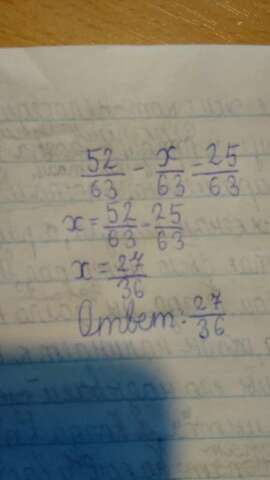 52/63 - x/63 = 25/63
x = 52/63 - 25/63
x = 27/36
Ответ: 27/36